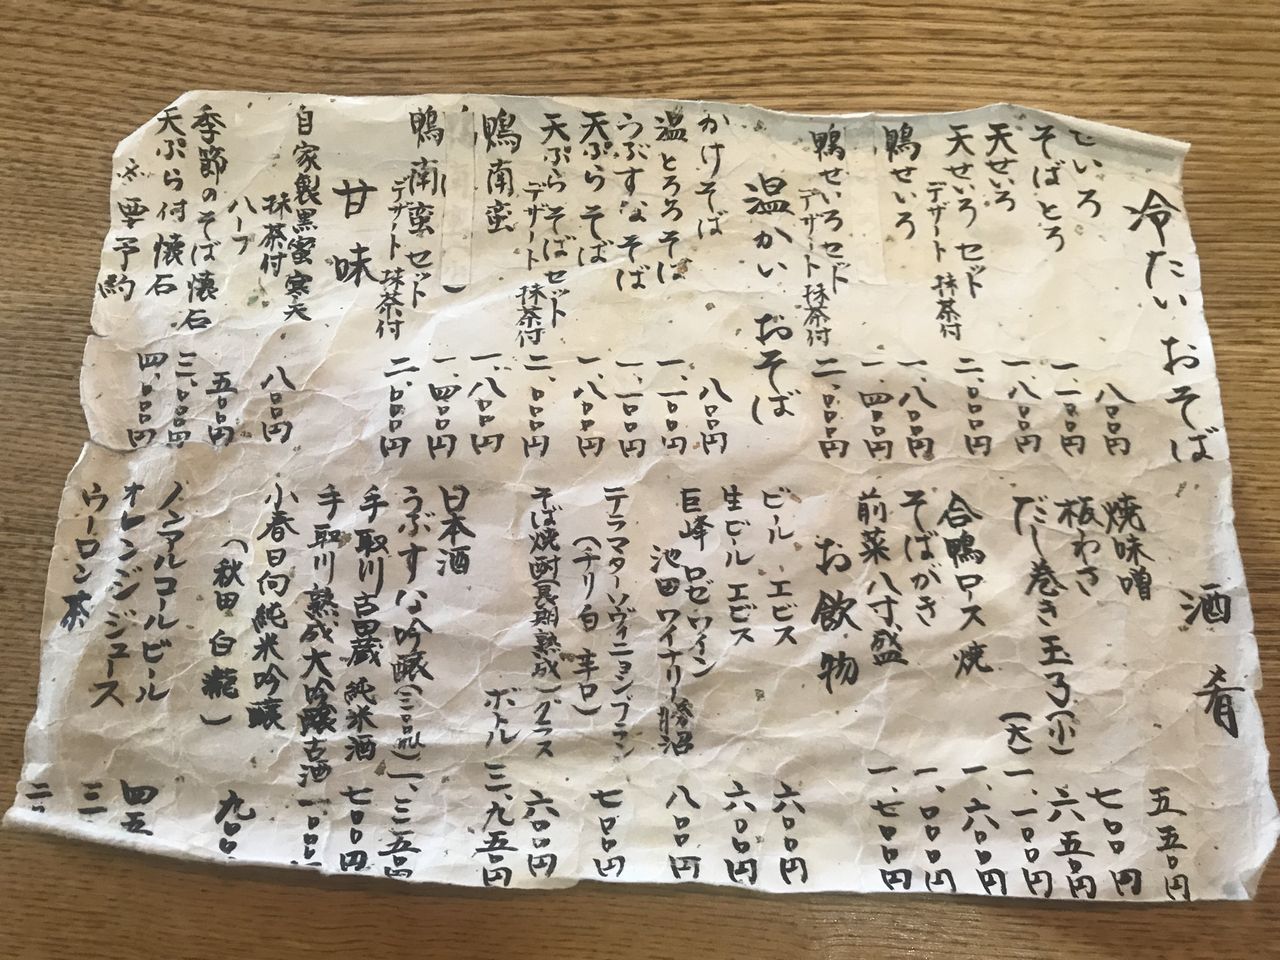 冷たいおそば
せいろ 八〇〇円
そばとろ 一、一〇〇円
天せいろ 一、八〇〇円
天せいろセット 二、〇〇〇円
デザート 抹茶付
鴨せいろ 一、八〇〇円
一、四〇〇円
鴨せいろセット 二、〇〇〇円
デザート 抹茶付
温かいおそば
かけそば 八〇〇円
温とろろそば 一、一〇〇円
うぶすなそば 一、一〇〇円
天ぷらそば 一、八〇〇円
天ぷらそばセット 二、〇〇〇円
デザート 抹茶付
鴨南蛮 一、八〇〇円
一、四〇〇円
鴨南蛮セット 二、〇〇〇円
デザート 抹茶付
甘味
自家製黒蜜寒天
抹茶付 八〇〇円
ハーフ 五〇〇円
季節のそば懐石 三、〇〇〇円
天ぷら付懐石 四、〇〇〇円
※要予約
酒肴
焼味噌 五五〇円
板わさ 七〇〇円
だし巻き玉子(小) 六五〇円
(大) 一、一〇〇円
合鴨ロース焼 一、六〇〇円
そばがき 一、〇〇〇円
前菜八寸盛 一、七〇〇円
お飲物
ビール エビス 六〇〇円
生ビール エビス 六〇〇円
巨峰ロゼワイン 八〇〇円
池田ワイナリー 勝沼
テラマターソヴィニョンブラン 七〇〇円
(チリ 白 辛口)
そば焼酎 グラス 六〇〇円
ボトル 三、九五〇円
日本酒
うぶすな吟醸(三〇〇ml) 一、三五〇円
手取川 吉田蔵 純米酒 七〇〇円
手取川 熟成大吟醸古酒 一、〇〇〇
小春日向純米吟醸 九〇〇
(秋田 白瀧)
ノンアルコールビール 四五
オレンジジュース 三
ウーロン茶 二